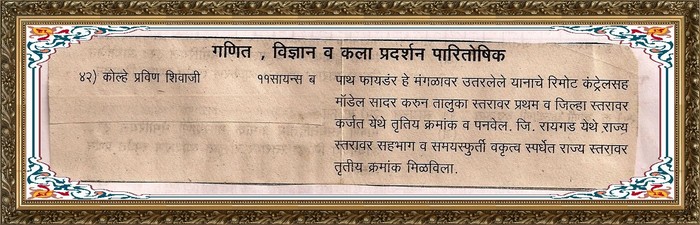 गणित , विज्ञान व कला प्रदर्शन पारितोषिक
४२) कोल्हे प्रविण शिवाजी ११सायन्स ब पाथ फायडंर हे मंगळावर उतरलेले यानाचे रिमोट कंट्रेलसह
मॉडेल सादर करुन तालुका स्तरावर प्रथम व जिल्हा स्तरावर
कर्जत येथे तृतिय क्रमांक व पनवेल. जि. रायगड येथे राज्य
स्तरावर सहभाग व समयस्फुर्ती वकृत्व स्पर्धेत राज्य स्तरावर
तृतीय क्रमांक मिळविला.